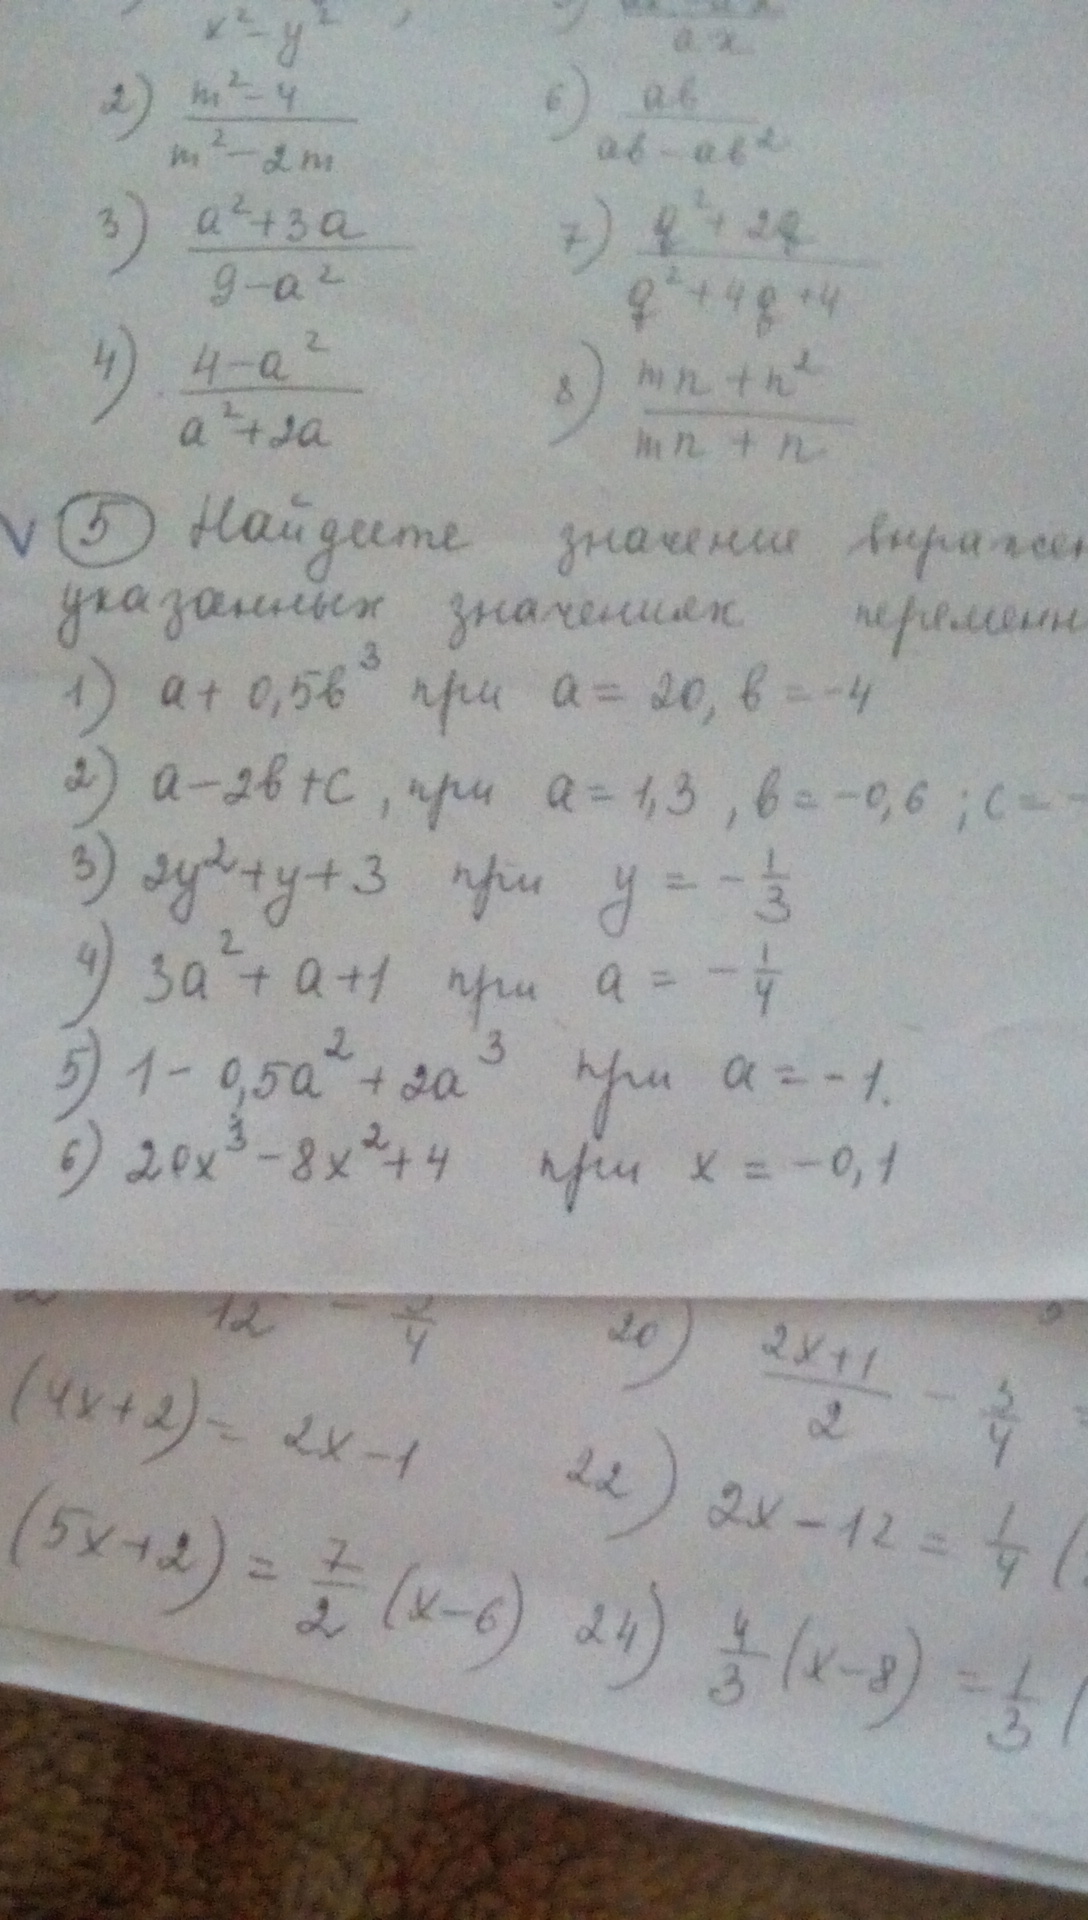 x² - y²
ax
2) (m² - 4)/(m² - 2m) 6) ab/(ab - ab²)
3) (a² + 3a)/(9 - a²) 7) (q² + 2q)/(q² + 4q + 4)
4) (4 - a²)/(a² + 2a) 8) (mn + n²)/(mn + n)
5 Найдите значение выражен
указанных значениях переменн
1) a + 0,5b³ при a = 20, b = -4
2) a - 2b + c, при a = 1,3, b = -0,6; c = -
3) 2y² + y + 3 при y = -1/3
4) 3a² + a + 1 при a = -1/4
5) 1 - 0,5a² + 2a³ при a = -1.
6) 20x³ - 8x² + 4 при x = -0,1
12 - 3/4 20) (2x+1)/2 - 3/4 =
(4x+2) = 2x - 1 22) 2x - 12 = 1/4 (
(5x+2) = 7/2 (x-6) 24) 4/3 (x-8) = 1/3 (